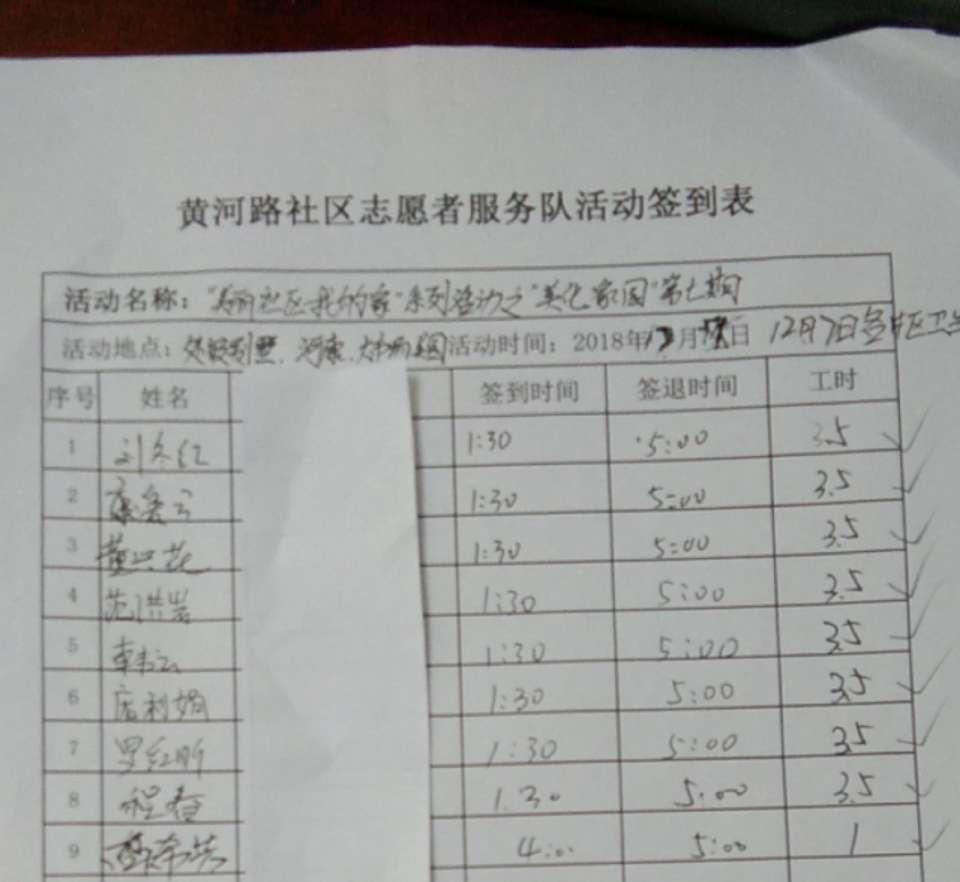 黄河路社区志愿者服务队活动签到表
活动名称："美丽社区我的家"系列活动之"美化家园"第七期
活动地点： 别墅、 活动时间：2018年12月 日 12月7日 区卫生
序号 姓名 签到时间 签退时间 工时
1 刘冬红 1:30 5:00 3.5
2 1:30 5:00 3.5
3 黄兴花 1:30 5:00 3.5
4 范洪岩 1:30 5:00 3.5
5 1:30 5:00 3.5
6 庞利娟 1:30 5:00 3.5
7 罗红 1:30 5:00 3.5
8 程春 1.30 5:00 3.5
9 4:00 5:00 1